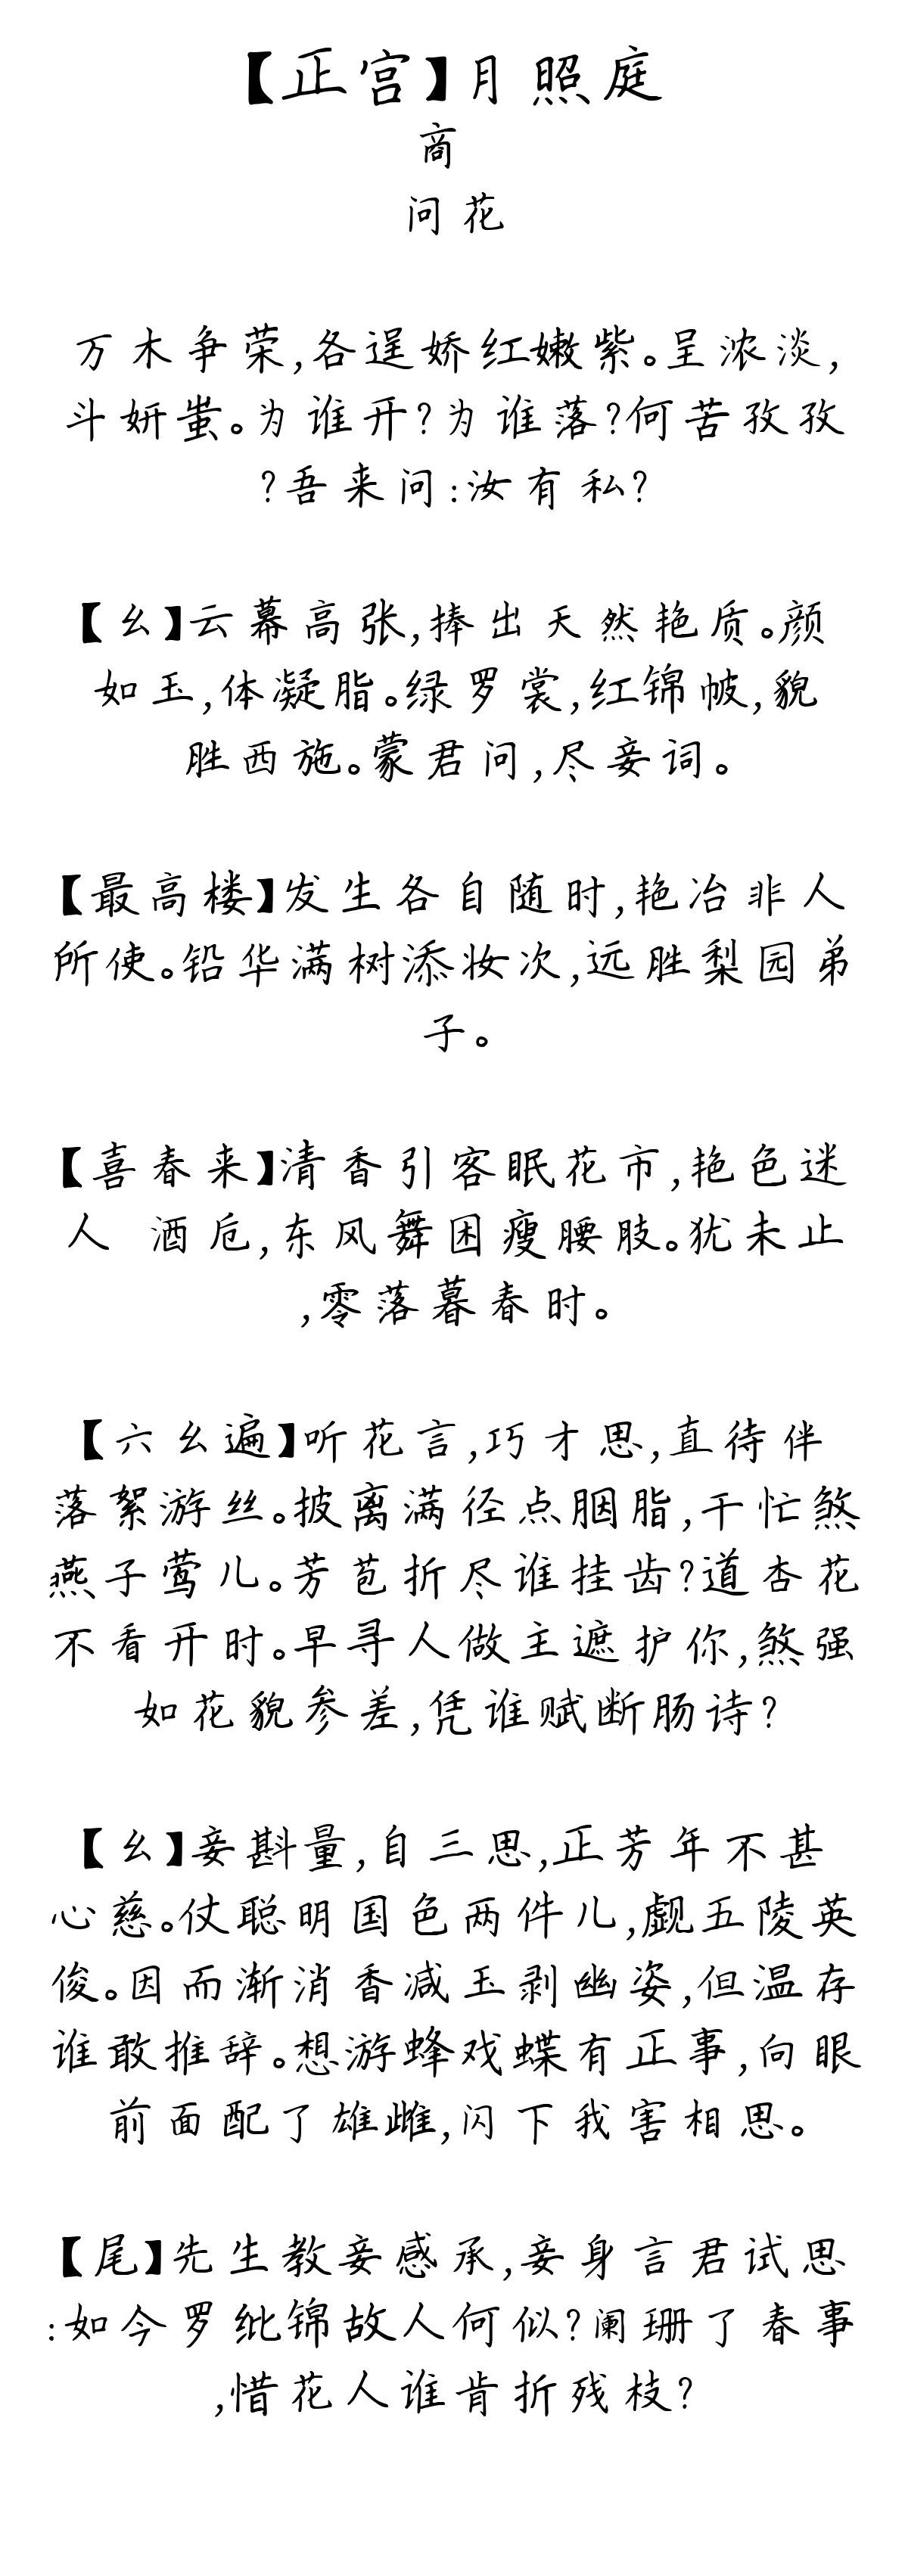 【正宫】月照庭
商
问花
万木争荣,各逞娇红嫩紫。呈浓淡,
斗妍蚩。为谁开?为谁落?何苦孜孜
?吾来问:汝有私?
【幺】云幕高张,捧出天然艳质。颜
如玉,体凝脂。绿罗裳,红锦帔,貌
胜西施。蒙君问,尽妾词。
【最高楼】发生各自随时,艳冶非人
所使。铅华满树添妆次,远胜梨园弟
子。
【喜春来】清香引客眠花市,艳色迷
人 酒卮,东风舞困瘦腰肢。犹未止
,零落暮春时。
【六幺遍】听花言,巧才思,直待伴
落絮游丝。披离满径点胭脂,干忙煞
燕子莺儿。芳苞折尽谁挂齿?道杏花
不看开时。早寻人做主遮护你,煞强
如花貌参差,凭谁赋断肠诗?
【幺】妾斟量,自三思,正芳年不甚
心慈。仗聪明国色两件儿,觑五陵英
俊。因而渐消香减玉剥幽姿,但温存
谁敢推辞。想游蜂戏蝶有正事,向眼
前面配了雄雌,闪下我害相思。
【尾】先生教妾感承,妾身言君试思
:如今罗纰锦故人何似?阑珊了春事
,惜花人谁肯折残枝?